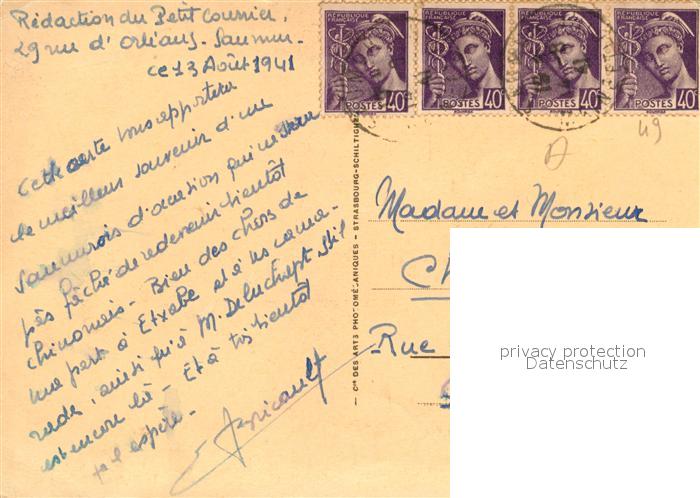 Rédaction du Petit Courrier,
29 rue d'Orléans. Saumur.
ce 13 Août 1941
Cette carte vous apportera
le meilleur souvenir d'un
Saumurois d'
pas fâché de redevenir bientôt
chinonais. Bien des choses de
ma part à et à ses cama-
rades, ainsi qu'à M. s'il
est encore là. Et à très bientôt
j'espère.
RÉPUBLIQUE FRANÇAISE POSTES 40c
RÉPUBLIQUE FRANÇAISE POSTES 40c
RÉPUBLIQUE FRANÇAISE POSTES 40c
RÉPUBLIQUE FRANÇAISE POSTES 40c
49
Cie DES ARTS PHOTOMÉCANIQUES - STRASBOURG-SCHILTIGHEIM
Madame et Monsieur
Rue
privacy protection
Datenschutz